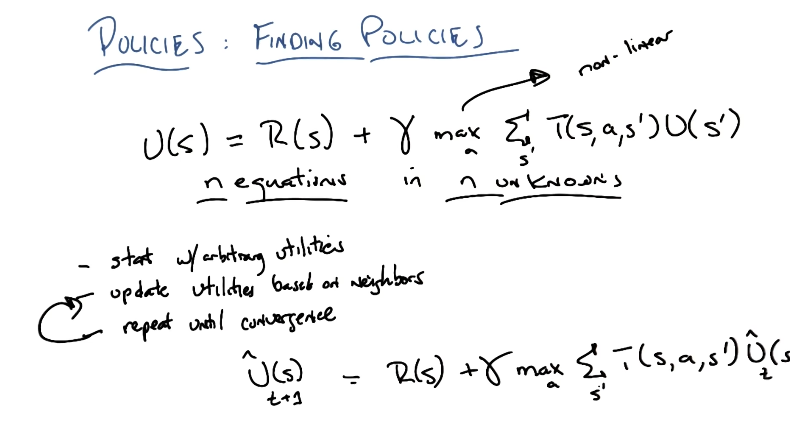 POLICIES : FINDING POLICIES
non-linear
U(s) = R(s) + γ max_a Σ_s' T(s,a,s')U(s')
n equations in n unknowns
- start w/ arbitrary utilities
- update utilities based on neighbors
- repeat until convergence
Û_{t+1}(s) = R(s) + γ max_a Σ_s' T(s,a,s')Û_t(s